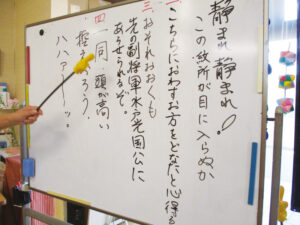 静まれ静まれ!
この紋所が目に入らぬか
二こちらにおわすお方をどなたと心得る
三おそれおおくも
先の副将軍水戸光国公に
あらせられるぞ。
四一同、頭が高い
控えおろう。
ハハァーーッ。